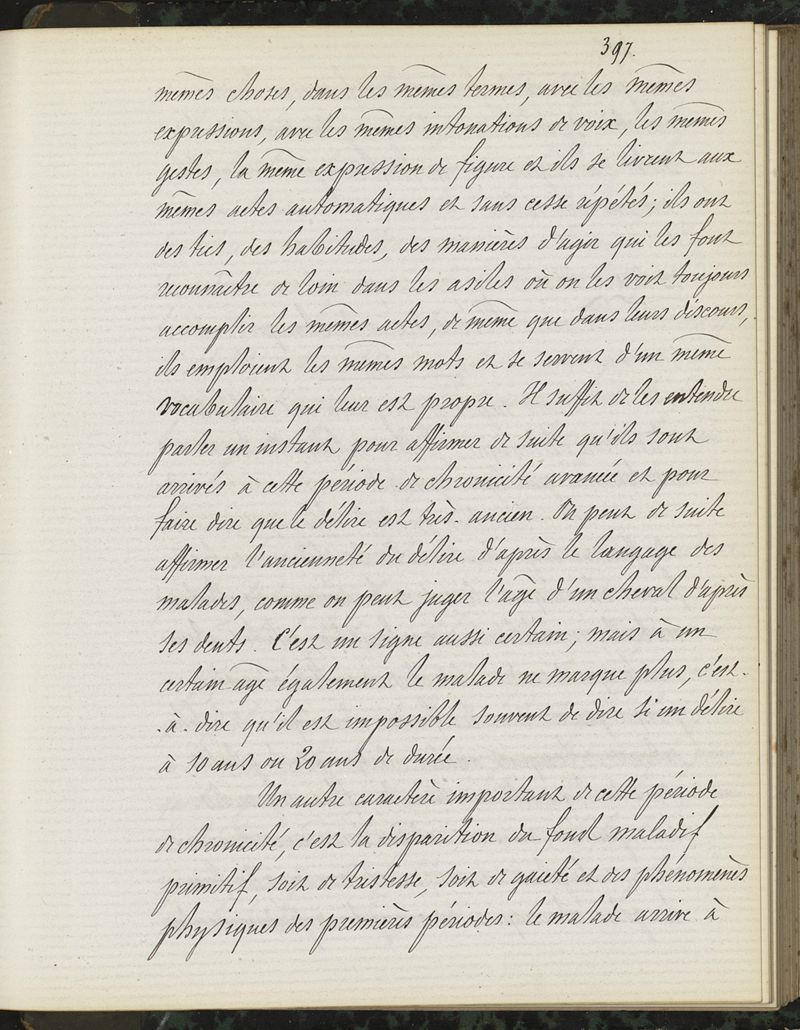 397.
mêmes choses, dans les mêmes termes, avec les mêmes
expressions, avec les mêmes intonations de voix, les mêmes
gestes, la même expression de figure et ils se livrent aux
mêmes actes automatiques et sans cesse répétés ; ils ont
des tics, des habitudes, des manières d'agir qui les font
reconnaître de loin dans les asiles où on les voit toujours
accomplir les mêmes actes, de même que dans leurs discours,
ils emploient les mêmes mots et se servent d'un même
vocabulaire qui leur est propre. Il suffit de les entendre
parler un instant pour affirmer de suite qu'ils sont
arrivés à cette période de chronicité avancée et pour
faire dire que le délire est très-ancien. On peut de suite
affirmer l'ancienneté du délire d'après le langage des
malades, comme on peut juger l'âge d'un cheval d'après
ses dents. C'est un signe aussi certain ; mais à un
certain âge également le malade ne marque plus, c'est-
-à-dire qu'il est impossible souvent de dire si un délire
à 10 ans ou 20 ans de durée.
Un autre caractère important de cette période
de chronicité, c'est la disparition du fond maladif
primitif, soit de tristesse, soit de gaieté et des phénomènes
physiques des premières périodes : le malade arrive à